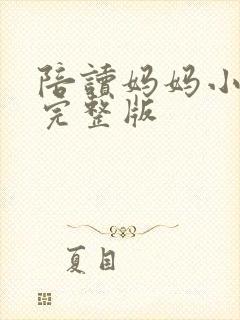 陪讀妈妈小
完整版
夏目